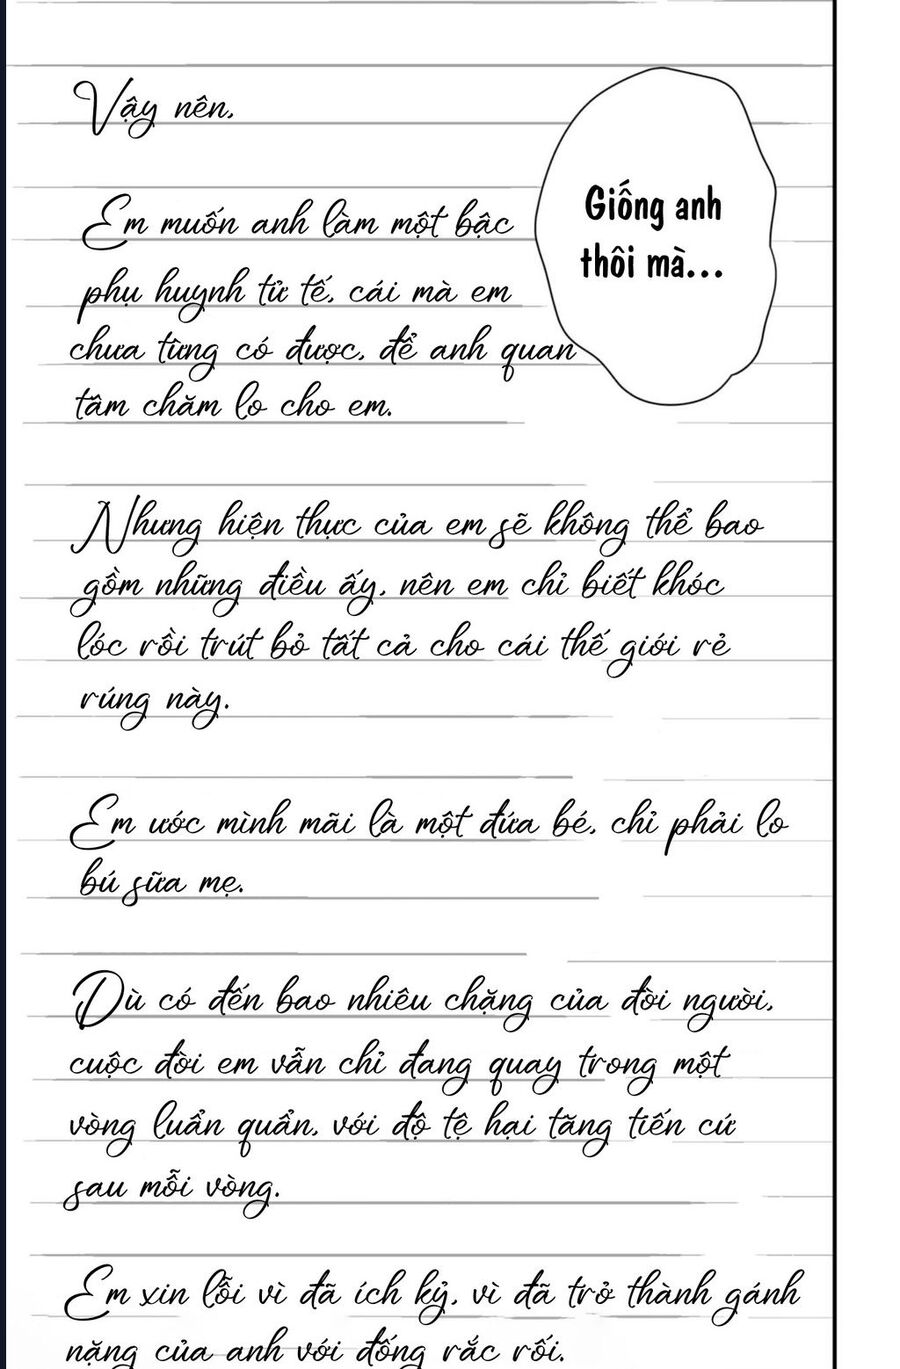 Vậy nên,
Giống anh
thôi mà...
Em muốn anh làm một bậc
phụ huynh tử tế, cái mà em
chưa từng có được, để anh quan
tâm chăm lo cho em.
Nhưng hiện thực của em sẽ không thể bao
gồm những điều ấy, nên em chỉ biết khóc
lóc rồi trút bỏ tất cả cho cái thế giới rẻ
rúng này.
Em ước mình mãi là một đứa bé, chỉ phải lo
bú sữa mẹ.
Dù có đến bao nhiêu chặng của đời người,
cuộc đời em vẫn chỉ đang quay trong một
vòng luẩn quẩn, với độ tệ hại tăng tiến cứ
sau mỗi vòng.
Em xin lỗi vì đã ích kỷ, vì đã trở thành gánh
nặng của anh với đống rắc rối.